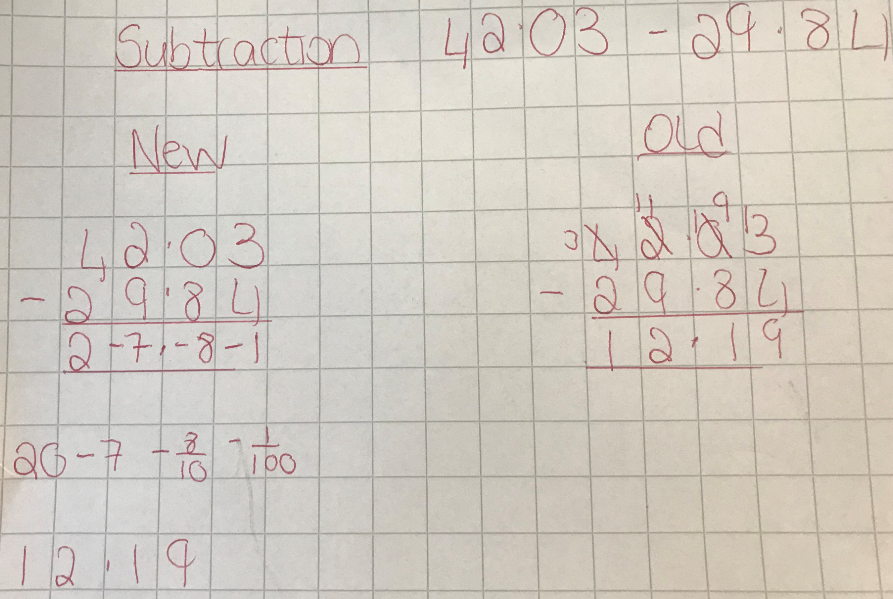 Subtraction 42.03 - 29.84
New
42.03
- 29.84
2 -7. -8 -1
20 - 7 - 8/10 - 1/100
12.19
Old
3 11 9 1
42.03
- 29.84
12.19